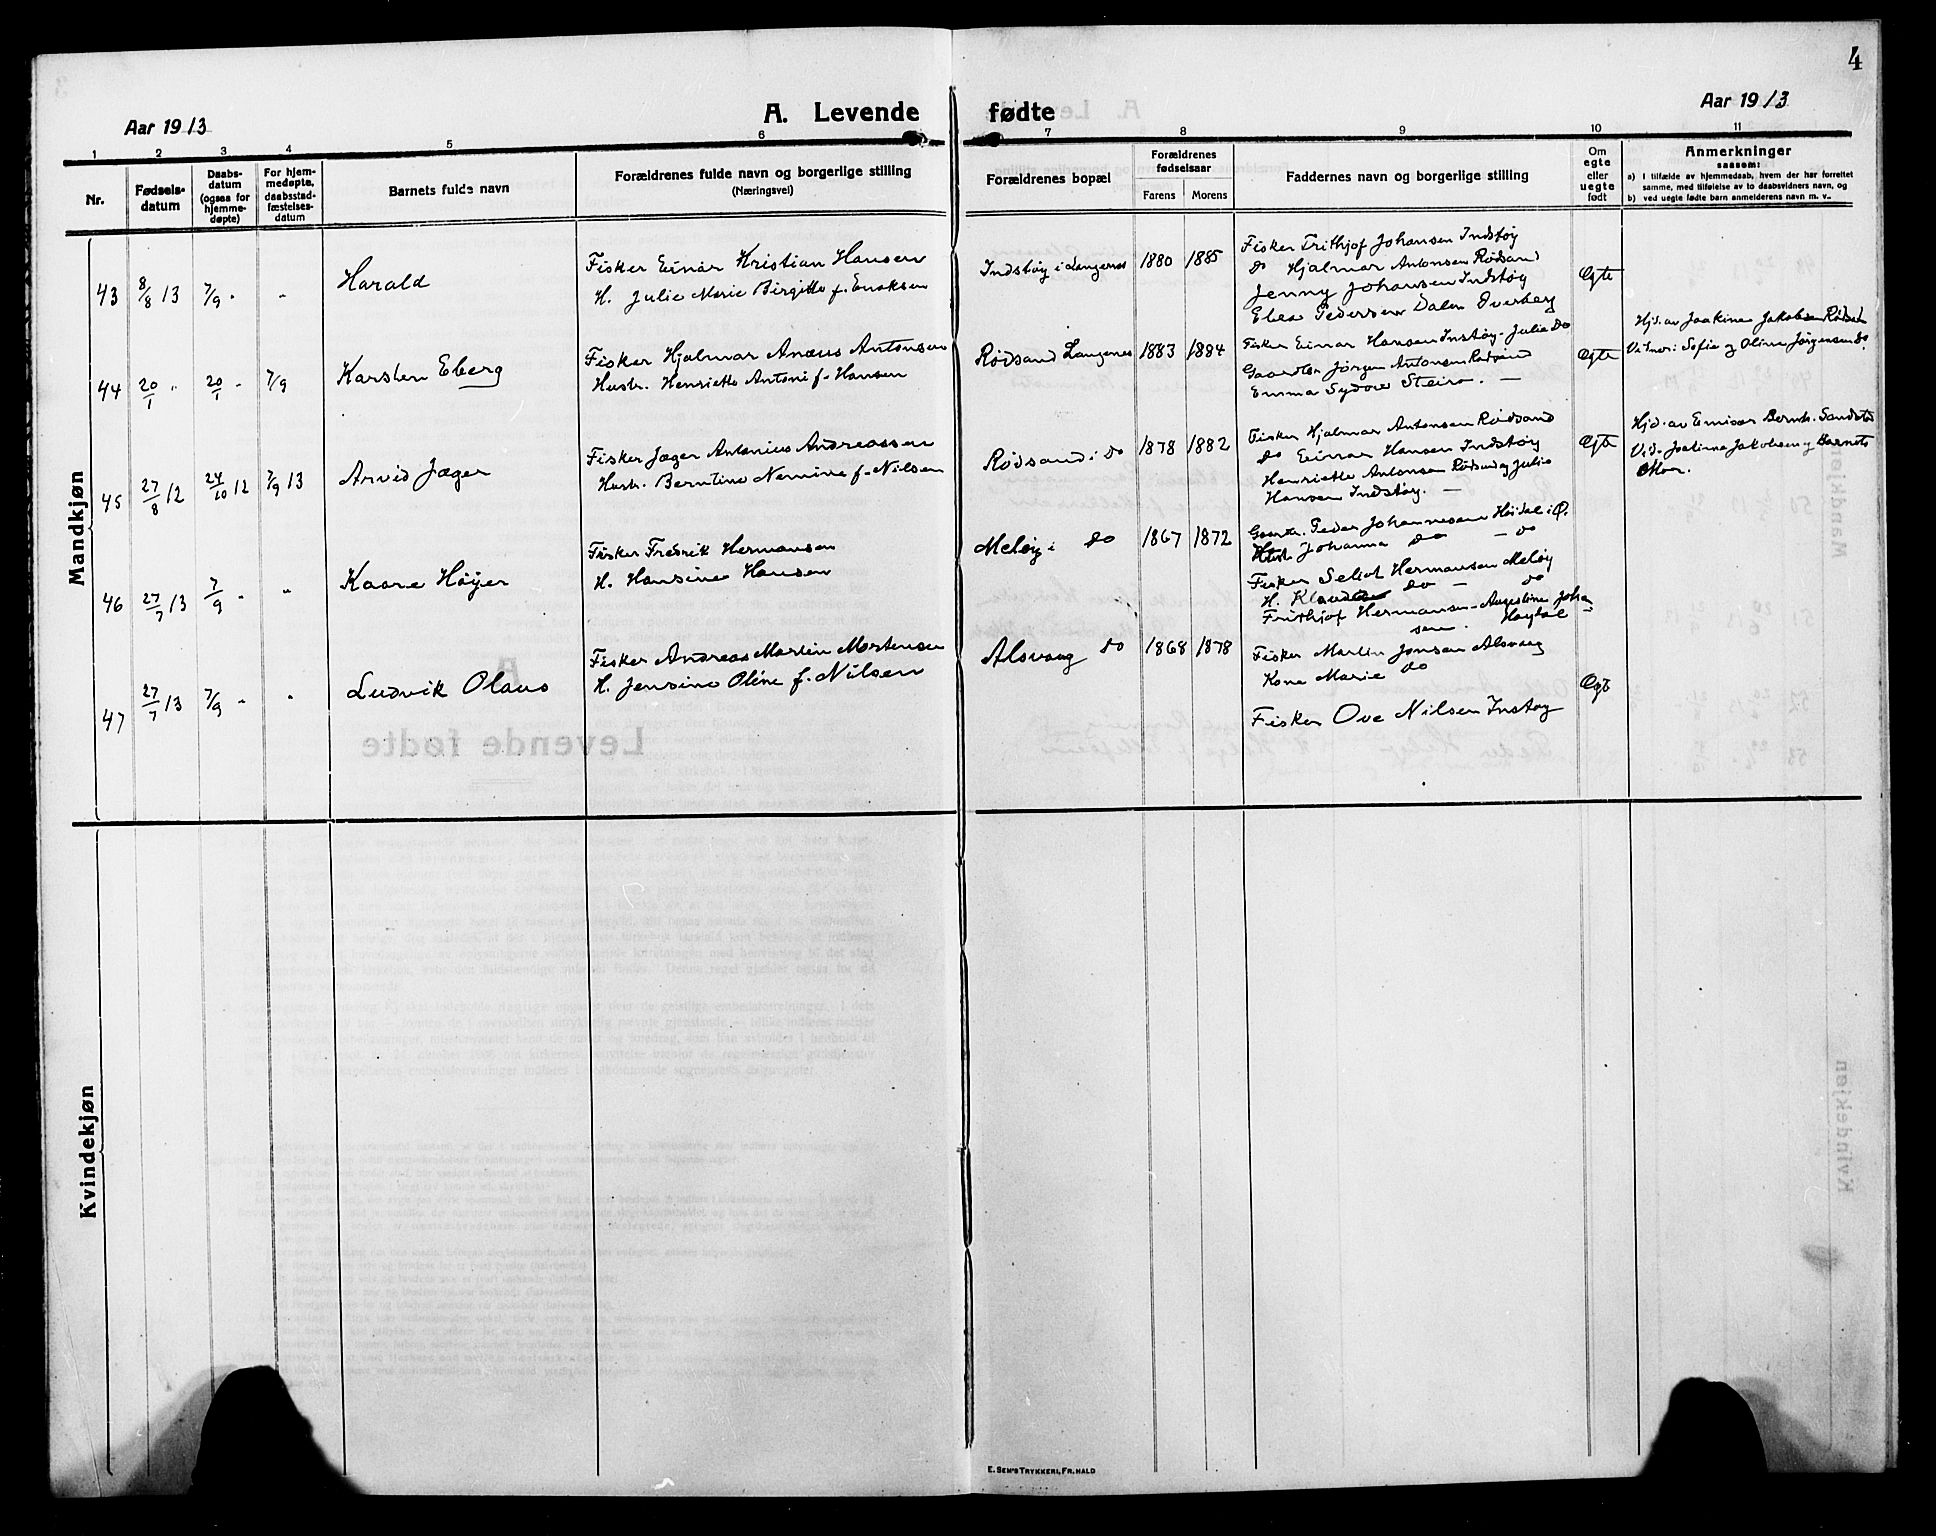 4
Aar 1913
A. Levende fødte
Aar 1913
1 2 3 4 5 6 7 8 9 10 11
Nr.
Fødsels-
datum
Daabs-
datum
(ogsaa for
hjemme-
døpte)
For hjem-
medøpte,
daabsstad-
fæstelses-
datum
Barnets fulde navn
Forældrenes fulde navn og borgerlige stilling
(Næringsvei)
Forældrenes bopæl
Forældrenes
fødselsaar
Farens Morens
Faddernes navn og borgerlige stilling
Om
egte
eller
uegte
født
Anmerkninger
saasom:
a) I tilfælde av hjemmedaab, hvem der har forrettet
samme, med tilføielse av to daabsvidners navn, og
b) ved uegte fødte barn anmelderens navn m. v..
Mandkjøn
43 8/8 13 7/9 " "
Harald
Fisker Einar Kristian Hansen
H. Julie Marie Birgitte f. Enoksen
Indstøy i Langenes
1880 1885
Fisker Frithjof Johansen Indstøy
do Hjalmar Antonsen Rødsand
Jenny Johansen Indstøy
Pedersen Dalen
Egte
44 20/1 " 20/1 " 7/9
Karsten Eberg
Fisker Hjalmar Anæus Antonsen
Hustr. Henriette Antoni f. Hansen
Rødsand Langenes
1883 1884
Fisker Einar Hansen Instøy - Julie do
Jørgen Antonsen Rødsand
Emma Sydow Steiro. —
Egte
Hjd. av Joakine Jakobsen Rødsd
Vitner: Sofie og Oline Jørgensen do.
45 27/8 12 24/10 12 7/9 13
Arvid Jæger
Fisker Jæger Antonius Andreassen
Hustr. Berntine Nemine f. Nilsen
Rødsand i do
1878 1882
Fisker Hjalmar Antonsen Rødsand
do Einar Hansen Indstøy
Henriette Antonsen Rødsand og Julie
Hansen Indstøy. —
Egte
Hjd. av Emisær Bernh. Sandstd
Vid. Joakine Jakobsen og Barnets
Mor.
46 27/7 13 7/9 " "
Kaare Høyer
Fisker Fredrik Hermansen
H. Hansine Hansen
Meløy i do
1867 1872
Gaardbr. Peder Johannesen Høidal i Ø.
Johanna do — do
Fisker Hermansen Meløy
H. do — do
Frithjof Hermansen - Augustine Johan
sen. Høydal —
47 27/7 13 7/9 " "
Ludvik Olaus
Fisker Andreas Martin Mortensen
H. Jensine Oline f. Nilsen
Alsvaag do
1868 1878
Fisker Martin Jensen Alsvaag
Kone Marie do
Fisker Ove Nilsen Instøy
Egte
Kvindekjøn
E. SEM'S TRYKKERI, FR. HALD